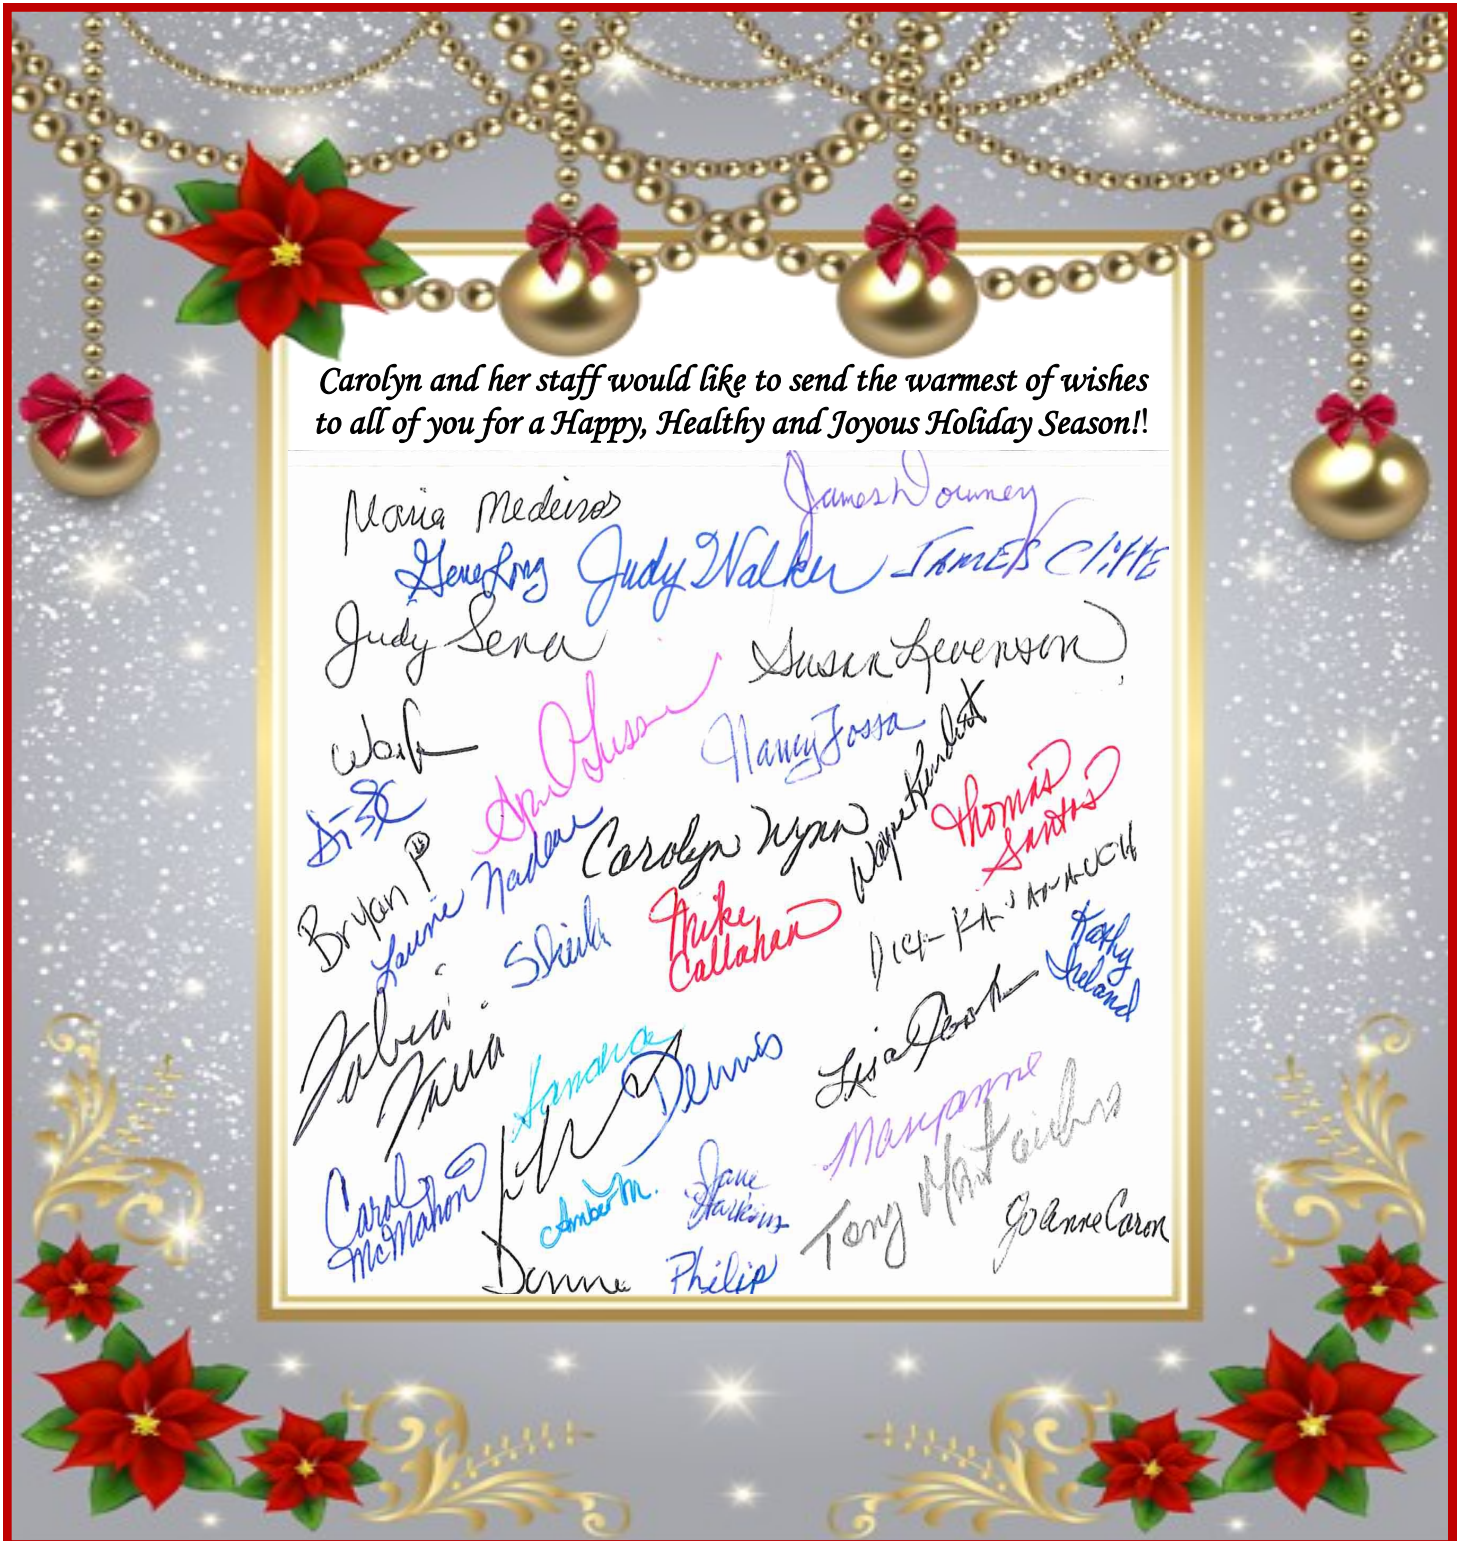 Carolyn and her staff would like to send the warmest of wishes
to all of you for a Happy, Healthy and Joyous Holiday Season!!
Maria Medeiros
James Downey
Gene Long
Judy Walker
JAMES Cliffe
Judy Sena
Susan Levenson
Nancy Fossa
Wayne
Thomas
Santos
Carolyn Wynn
Laurie Nadeau
Bryan P
Sheila
Mike
Callahan
Dick KAVANAUGH
Kathy
Ireland
Lisa
Sandra
Dennis
Maryanne
Carol
McMahon
Amber M.
Jane
Harkins
Tony
JoAnne Caron
Donna
Philip